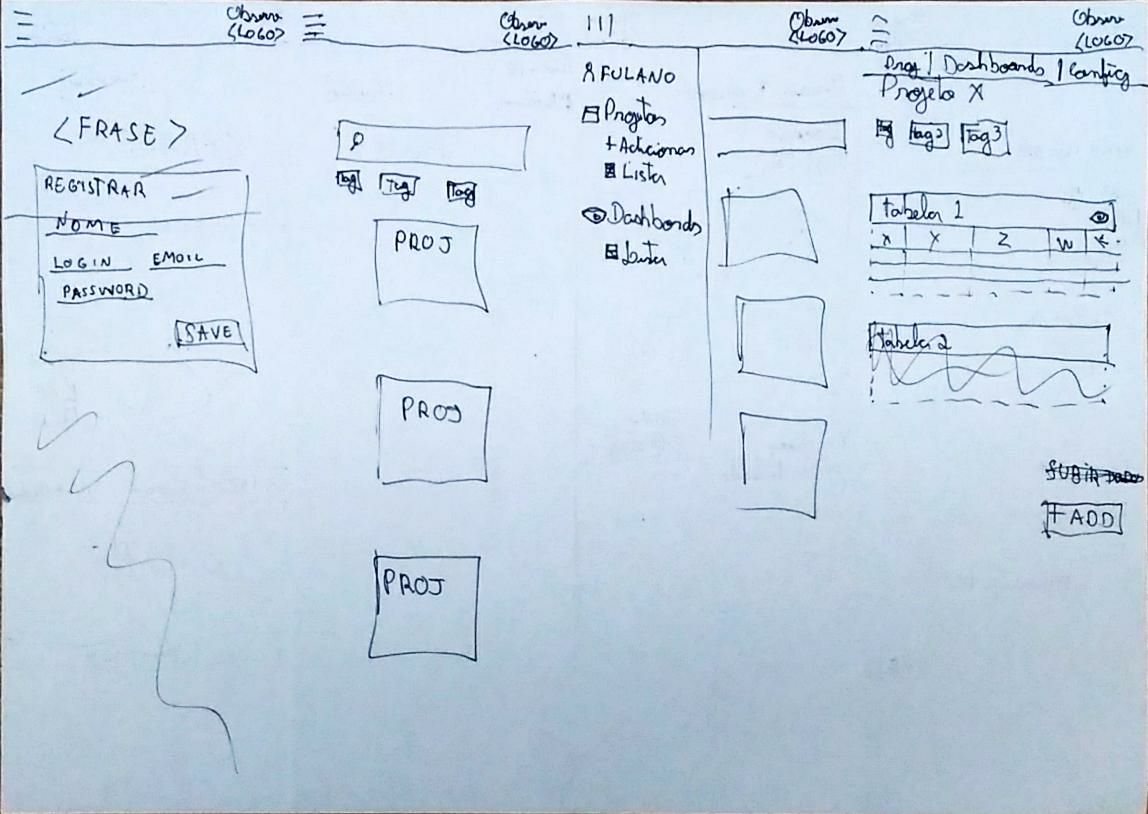 Observ
<LOGO>
<FRASE>
REGISTRAR
NOME
LOGIN EMAIL
PASSWORD
SAVE
Observ
<LOGO>
Tag Tag Tag
PROJ
PROJ
PROJ
Observ
<LOGO>
FULANO
Projetos
+ Adicionar
Listar
Dashboards
Listar
Observ
<LOGO>
Proj | Dashboards | Config
Projeto X
Tag 2 Tag 3
tabela 1
X Y Z W K
tabela 2
SUBIR DADOS
+ ADD